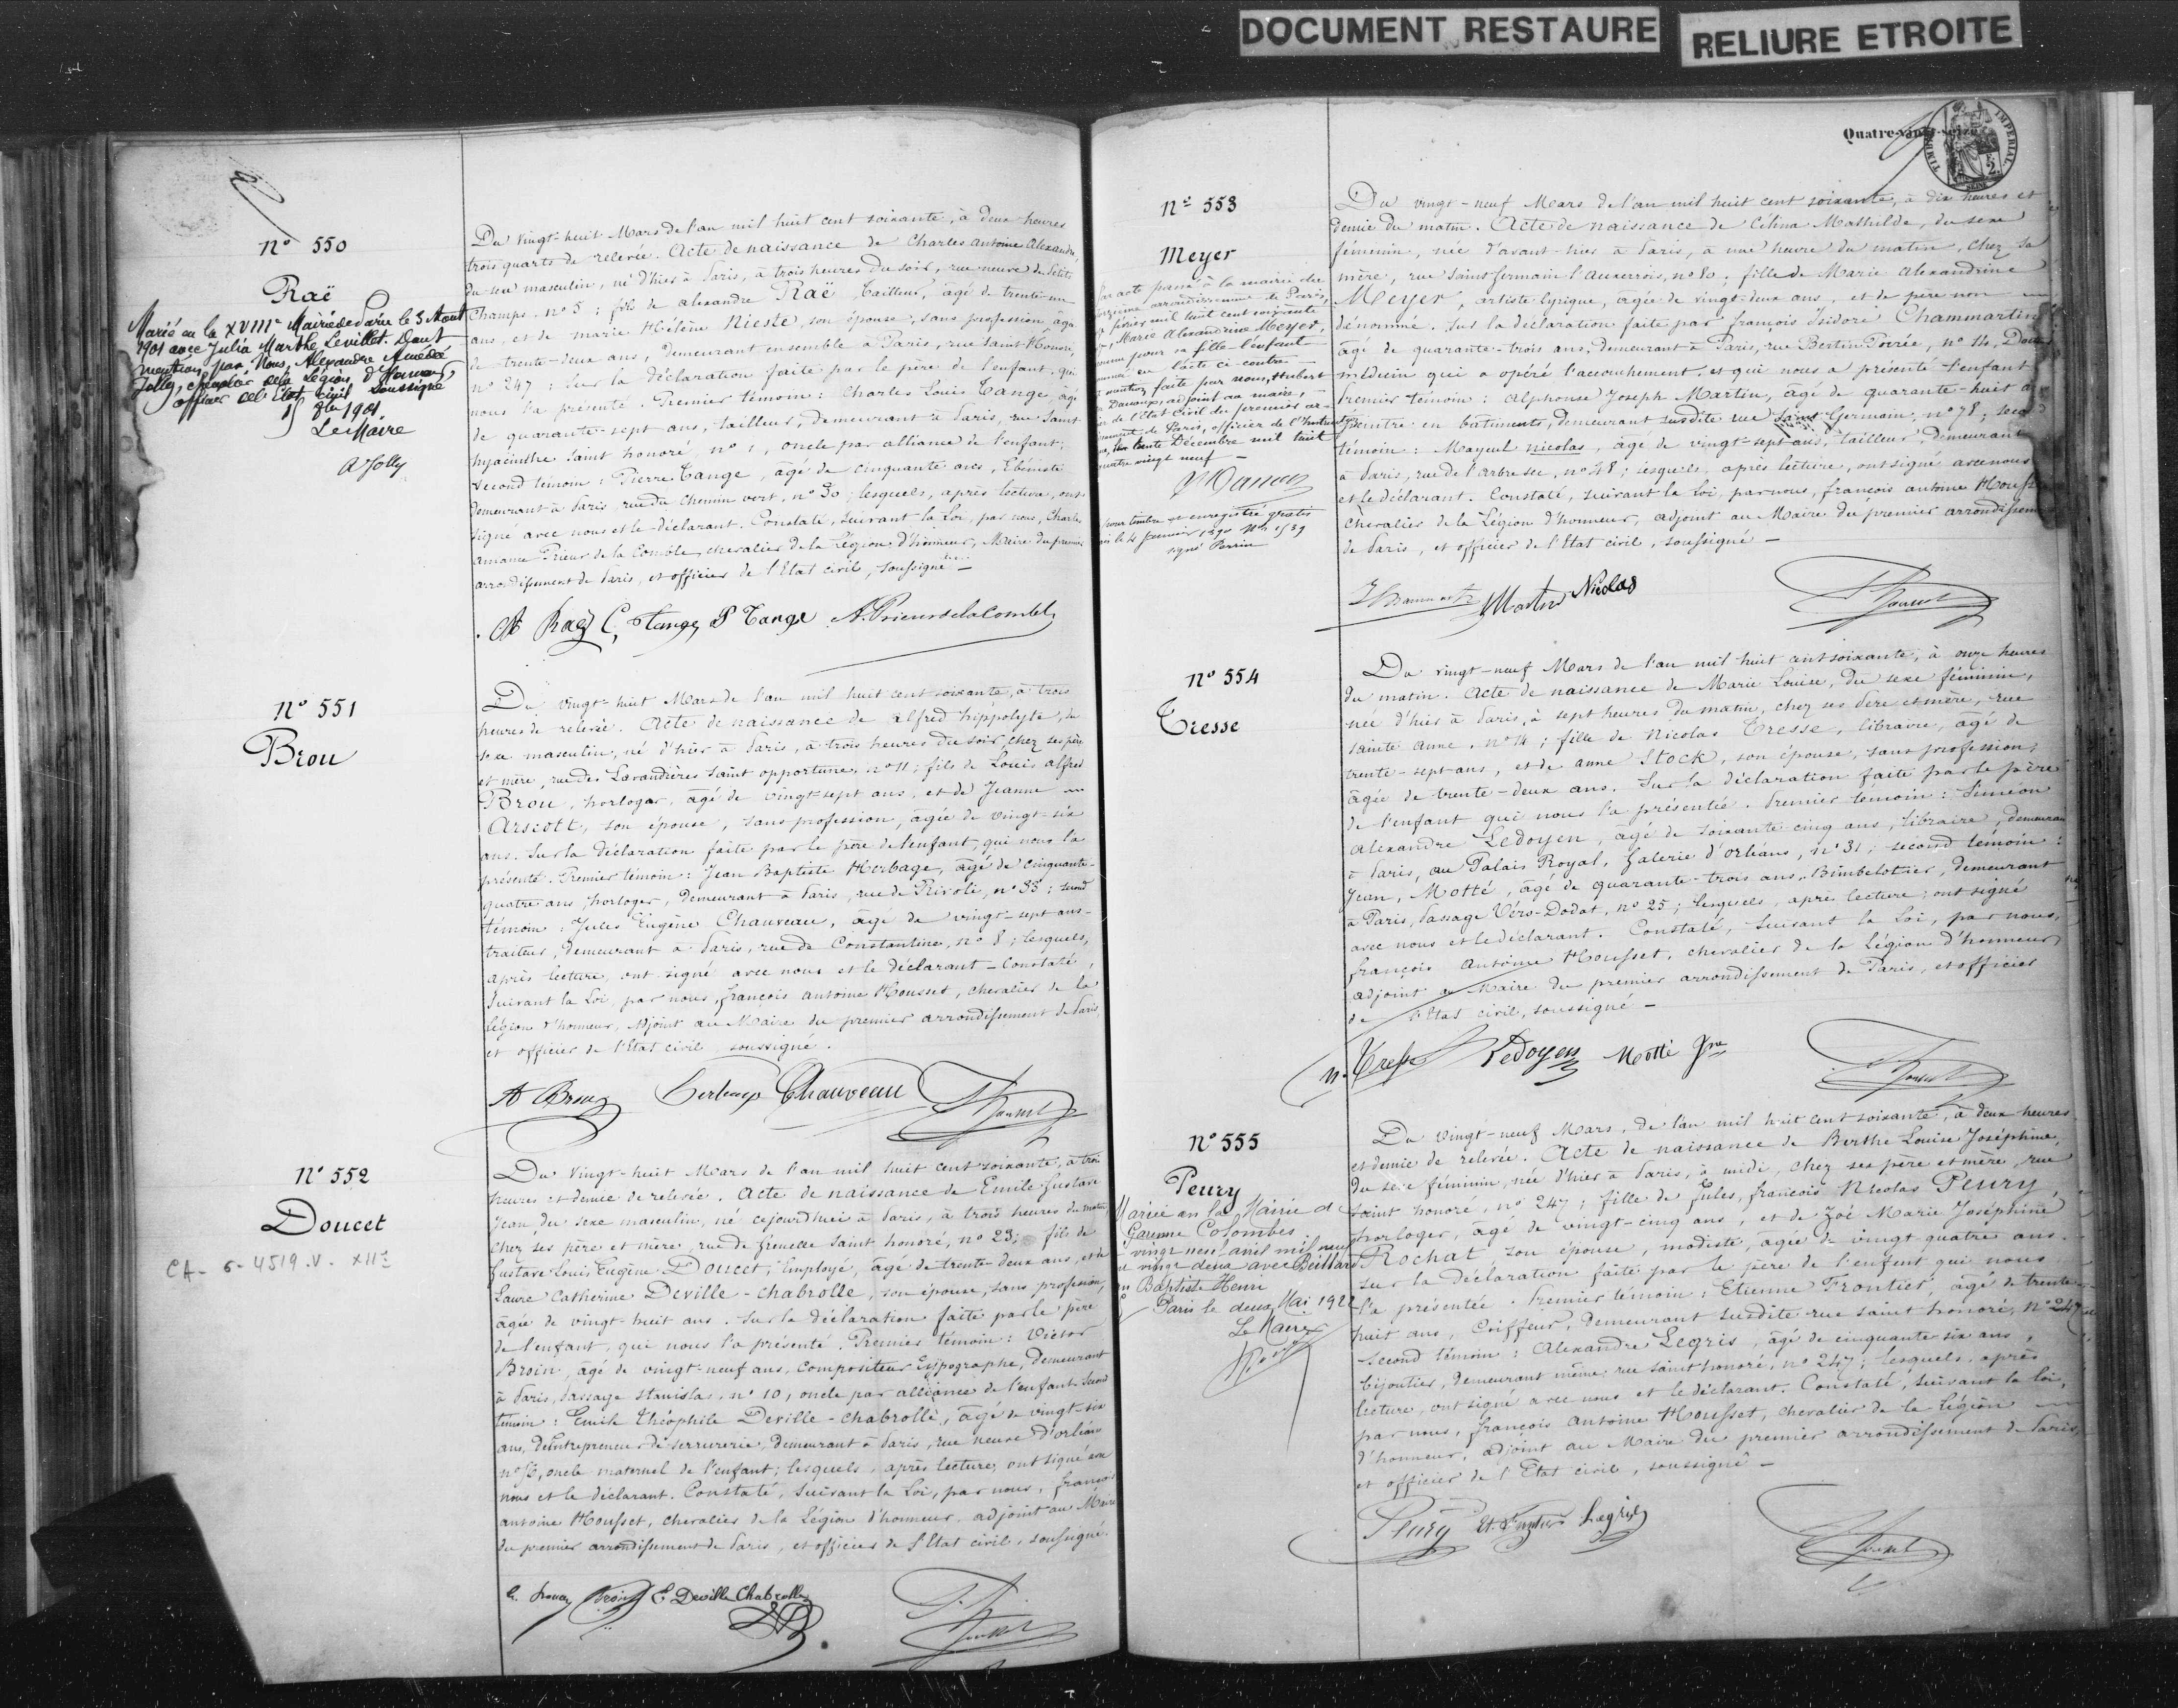 DOCUMENT RESTAURE
RELIURE ETROITE
N° 550
Raë
Marié en la XVIIIe Mairie de Paris le 3 Aout
1901 avec Julia Marthe Levillet. Dont
mention par Nous, Alexandre Amédée
Jolly, chevalier de la Légion d'honneur,
officier de l'Etat civil soussigné
1901
Le Maire
A Jolly
Du vingt-huit Mars de l'an mil huit cent soixante, à deux heures
trois quarts de relevée. Acte de naissance de Charles Antoine Alexandre,
du sexe masculin, né d'hier à Paris, à trois heures du soir, rue neuve des Petits
Champs, n° 5 ; fils de Alexandre Raë, tailleur, âgé de trente-un
ans, et de marie Hélène Nieste, son épouse, sans profession, âgée
de trente-deux ans, demeurant ensemble à Paris, rue Saint-Honoré,
n° 247 ; Sur la déclaration faite par le père de l'enfant, qui
nous l'a présenté. Premier témoin : Charles Louis Tange, âgé
de quarante-sept ans, tailleur, demeurant à Paris, rue Saint
hyacinthe Saint honoré, n° 1, oncle par alliance de l'enfant ;
Second témoin : Pierre Tange, âgé de cinquante ans, Ebéniste
demeurant à Paris, rue du Chemin vert, n° 30 ; lesquels, après lecture, ont
signé avec nous et le déclarant. Constaté, suivant la Loi, par nous, Charles
Prieur de la Comble, chevalier de la Légion d'honneur, Maire du premier
arrondissement de Paris, et officier de l'Etat civil, soussigné —
A Raë C. Tange P Tange A. Prieur de la Comble
N° 551
Brou
Du vingt-huit Mars de l'an mil huit cent soixante, à trois
heures de relevée. Acte de naissance de alfred hippolyte, du
sexe masculin, né d'hier à Paris, à trois heures du soir, chez ses père
et mère, rue des Lavandières Saint opportune, n° 11 ; fils de Louis alfred
Brou, horloger, âgé de vingt-sept ans, et de Jeanne
Arscott, son épouse, sans profession, âgée de vingt-six
ans. Sur la déclaration faite par le père de l'enfant, qui nous l'a
présenté. Premier témoin : Jean Baptiste Herbage, âgé de cinquante-
quatre ans, horloger, demeurant à Paris, rue de Rivoli, n° 33 ; second
témoin : Jules Eugène Chauveau, âgé de vingt-sept ans
traiteur, demeurant à Paris, rue de Constantine, n° 8 ; lesquels,
après lecture, ont signé avec nous et le déclarant — Constaté,
suivant la Loi, par nous, françois antoine Housset, chevalier de la
légion d'honneur, Adjoint au Maire du premier arrondissement de Paris,
et officier de l'Etat civil soussigné.
A Brou Chauveau
N° 552
Doucet
CA - 6 - 4519 . V . XIIe
Du vingt-huit Mars de l'an mil huit cent soixante, à trois
heures et demie de relevée. Acte de naissance de Emile Gustave
Jean du sexe masculin, né cejourd'hui à Paris, à trois heures du matin,
chez ses père et mère, rue de Grenelle Saint honoré, n° 23 ; fils de
Gustave Louis Eugène Doucet, Employé, âgé de trente-deux ans, et de
Laure Catherine Deville-Chabrolle, son épouse, sans profession,
âgée de vingt-huit ans. Sur la déclaration faite par le père
de l'enfant, qui nous l'a présenté. Premier témoin : Victor
Broin, âgé de vingt-neuf ans, compositeur typographe, demeurant
à Paris, passage Stanislas, n° 10, oncle par alliance de l'enfant. Second
témoin : Emile Théophile Deville-Chabrolle, âgé de vingt-six
ans, Entrepreneur de serrurerie, demeurant à Paris, rue neuve d'orléans
n° 16, oncle maternel de l'enfant ; lesquels, après lecture, ont signé avec
nous et le déclarant. Constaté, suivant la Loi, par nous, françois
antoine Housset, chevalier de la Légion d'honneur, adjoint au Maire
du premier arrondissement de Paris, et officier de l'Etat civil, soussigné.
Broin E Deville Chabrolle
Quatre-vingt-seize
TIMBRE IMPERIAL
SEINE
N° 553
Meyer
Par acte passé à la mairie du
onzième arrondissement de Paris,
février mil huit cent soixante
Marie Alexandrine Meyer,
pour sa fille l'enfant
en l'acte ci-contre
mention faite par nous, Hubert
adjoint au maire,
de l'Etat Civil du premier ar-
de Paris, officier de l'Instruction
le trente Décembre mil huit
quatre vingt neuf —
pour timbre et enregistré gratis
le 4 Janvier 1890 N° 1539
signé Perrin
Du vingt-neuf Mars de l'an mil huit cent soixante, à dix heures et
demie du matin. Acte de naissance de Célina Mathilde, du sexe
féminin, née d'avant-hier à Paris, à une heure du matin, chez sa
mère, rue Saint Germain l'auxerrois, n° 80 ; fille de Marie Alexandrine
Meyer, artiste lyrique, âgée de vingt-deux ans, et de père non
dénommé. Sur la déclaration faite par françois Isidore Chammartin
âgé de quarante-trois ans, demeurant à Paris, rue Bertin Poirée, n° 14, Docteur
médecin qui a opéré l'accouchement, et qui nous a présenté l'enfant
Premier témoin : Alphonse Joseph Martin, âgé de quarante-huit ans
peintre en bâtiments, demeurant susdite rue Saint-Germain, n° 78 ; second
témoin : Mayeul nicolas, âgé de vingt-sept ans, tailleur, demeurant
à Paris, rue de l'arbre sec, n° 48 ; lesquels, après lecture, ont signé avec nous
et le déclarant. Constaté, suivant la loi, par nous, françois antoine Housset
chevalier de la Légion d'honneur, adjoint au Maire du premier arrondissement
de Paris, et officier de l'Etat civil, soussigné —
Martin Nicolas
N° 554
Tresse
Du vingt-neuf Mars de l'an mil huit cent soixante, à onze heures
du matin. Acte de naissance de Marie Louise, du sexe féminin,
née d'hier à Paris, à sept heures du matin, chez ses Père et mère, rue
Sainte anne, n° 14 ; fille de Nicolas Tresse, libraire, âgé de
trente-sept ans, et de anne Stock, son épouse, sans profession,
âgée de trente-deux ans. Sur la déclaration faite par le père
de l'enfant qui nous l'a présentée. Premier témoin : Siméon
Alexandre Ledoyen, âgé de soixante cinq ans, libraire, demeurant
à Paris, au Palais Royal, Galerie d'orléans, n° 31 ; second témoin :
Jean, Motté, âgé de quarante-trois ans, Bimbelotier, demeurant
à Paris, Passage Véro-Dodat, n° 25 ; lesquels, après lecture, ont signé
avec nous et le déclarant. Constaté, suivant la Loi, par nous,
françois Antoine Housset, chevalier de la Légion d'honneur
adjoint au Maire du premier arrondissement de Paris, et officier
de l'Etat civil, soussigné —
N. Tresse Ledoyen Motté Jne
N° 555
Peury
Mariée en la Mairie de
Garenne Colombes
vingt neuf avril mil neuf
vingt deux avec Beillard
Baptiste Henri
Paris le deux Mai 1922
Le Maire
Du vingt-neuf Mars, de l'an mil huit cent soixante, à deux heures
et demie de relevée. Acte de naissance de Berthe Louise Joséphine,
du sexe féminin, née d'hier à Paris, à midi, chez ses père et mère, rue
Saint honoré, n° 247 ; fille de Jules, françois Nicolas Peury,
horloger, âgé de vingt-cinq ans, et de Zoé Marie Joséphine
Rochat son épouse, modiste, âgée de vingt quatre ans.
Sur la déclaration faite par le père de l'enfant qui nous
l'a présentée. Premier témoin : Etienne Frontier, âgé de trente-
huit ans, Coiffeur, demeurant susdite rue saint honoré, n° 247
Second témoin : Alexandre Legris, âgé de cinquante six ans,
bijoutier, demeurant même rue Saint honoré, n° 247 ; lesquels, après
lecture, ont signé avec nous et le déclarant. Constaté, suivant la loi,
par nous, françois Antoine Housset, chevalier de la Légion
d'honneur, adjoint au Maire du premier arrondissement de Paris,
et officier de l'Etat civil, soussigné —
Peury Legris